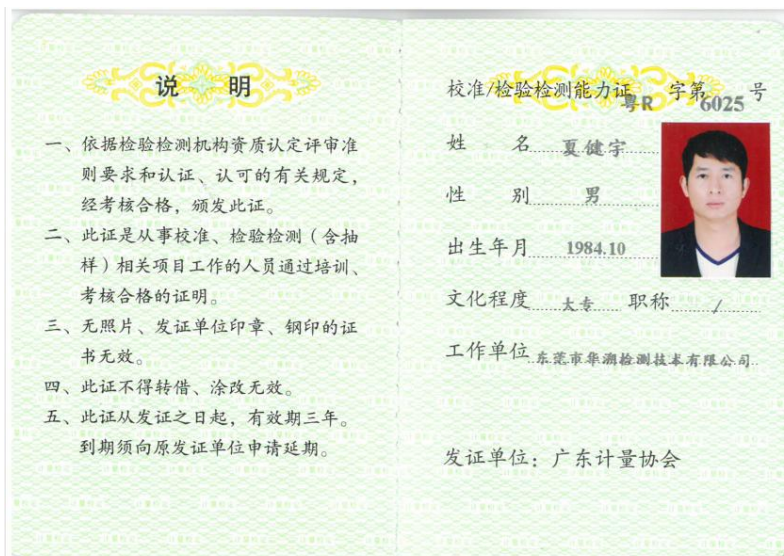 说 明
一、依据检验检测机构资质认定评审准
则要求和认证、认可的有关规定，
经考核合格，颁发此证。
二、此证是从事校准、检验检测（含抽
样）相关项目工作的人员通过培训、
考核合格的证明。
三、无照片、发证单位印章、钢印的证
书无效。
四、此证不得转借、涂改无效。
五、此证从发证之日起，有效期三年。
到期须向原发证单位申请延期。
校准/检验检测能力证 粤R 字第 6025 号
姓 名 夏健宇
性 别 男
出生年月 1984.10
文化程度 大专 职称 /
工作单位 东莞市华溯检测技术有限公司
发证单位：广东计量协会